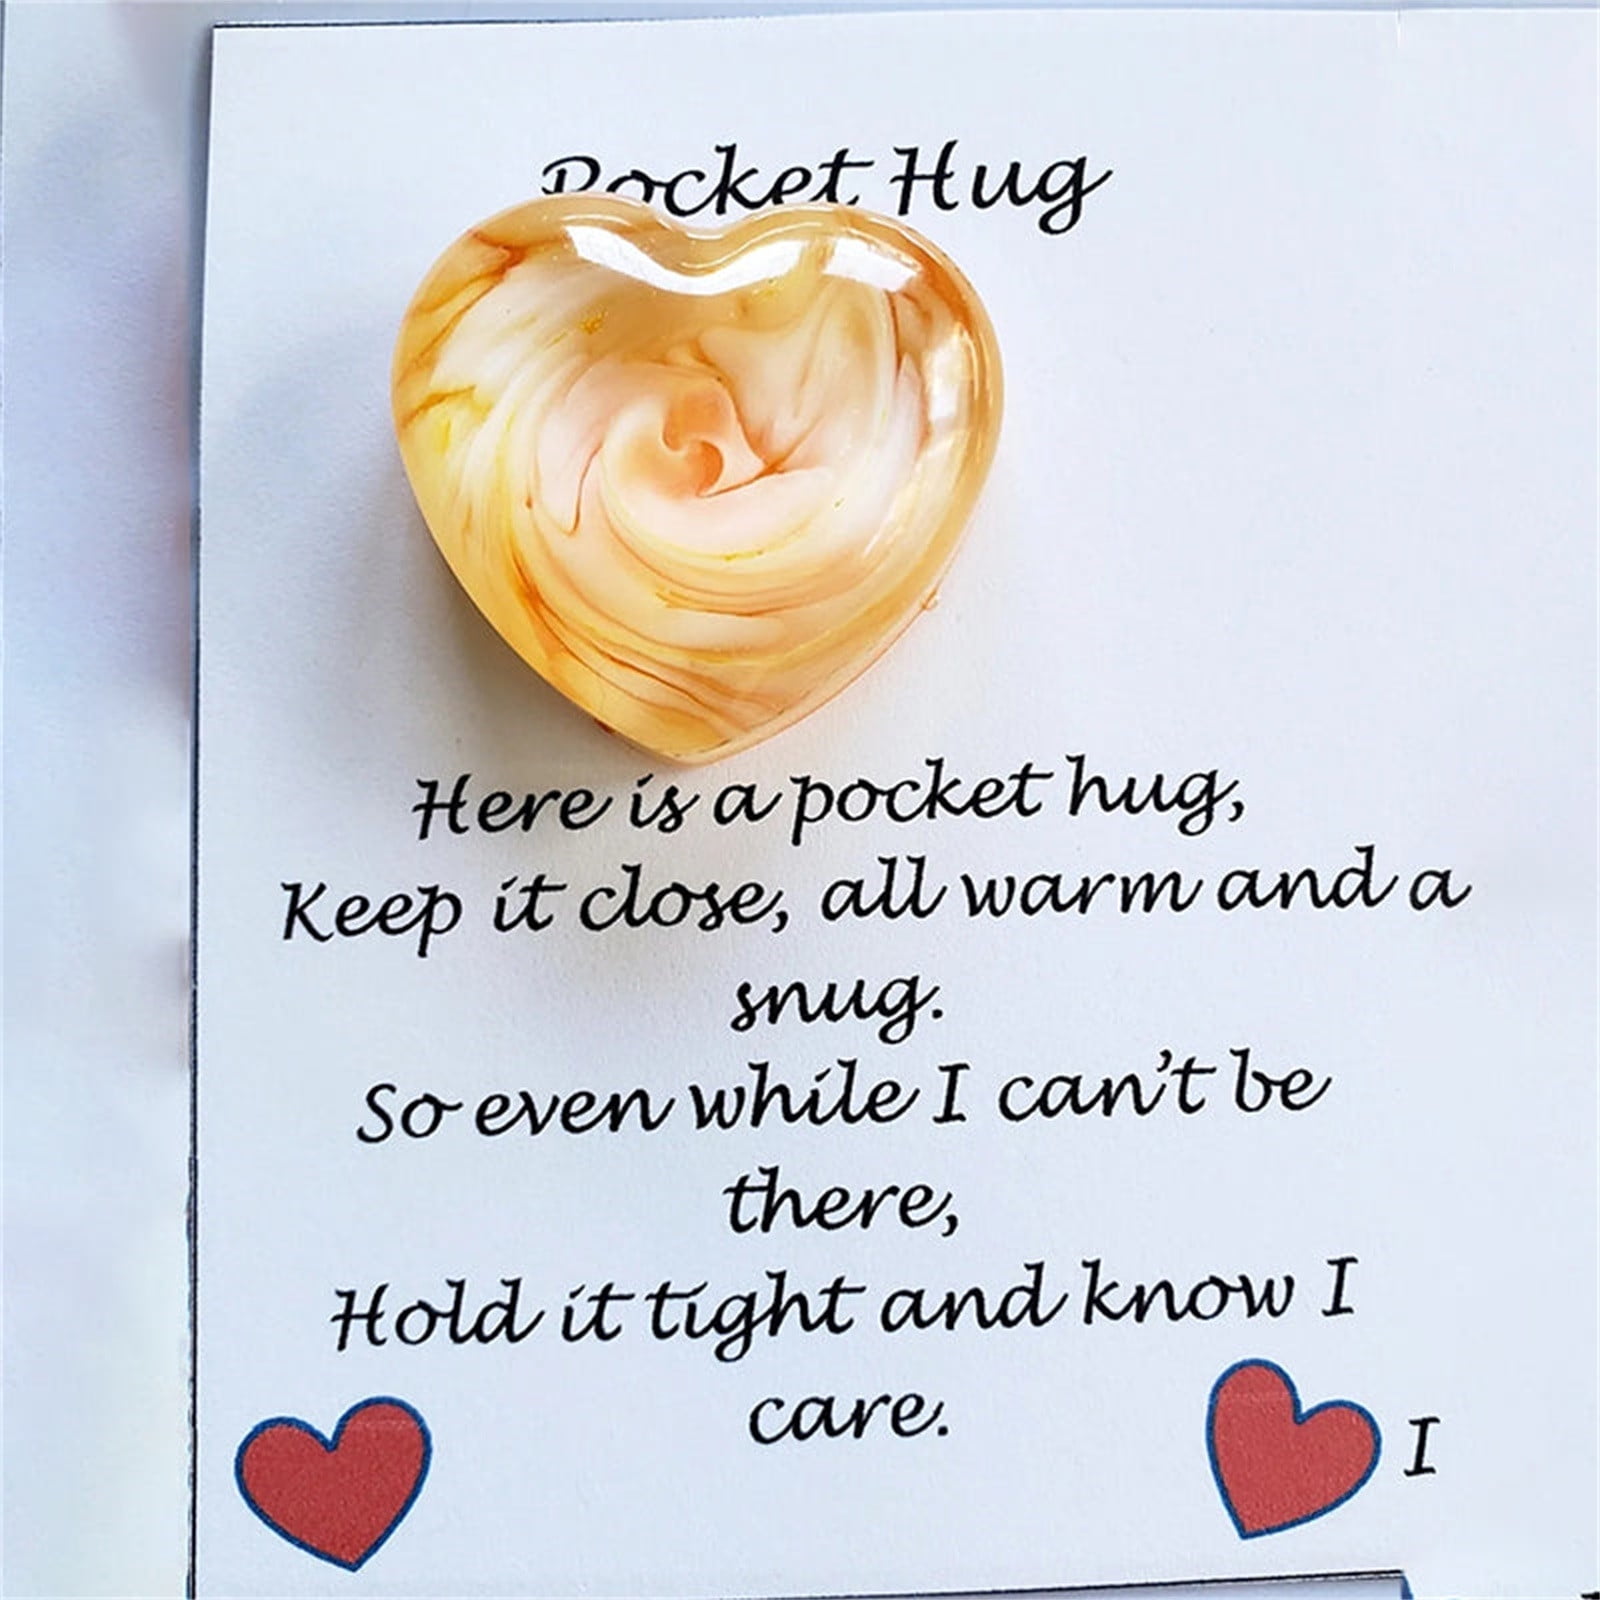 Pocket Hug
Here is a pocket hug,
Keep it close, all warm and a
snug.
So even while I can't be
there,
Hold it tight and know I
care.
I